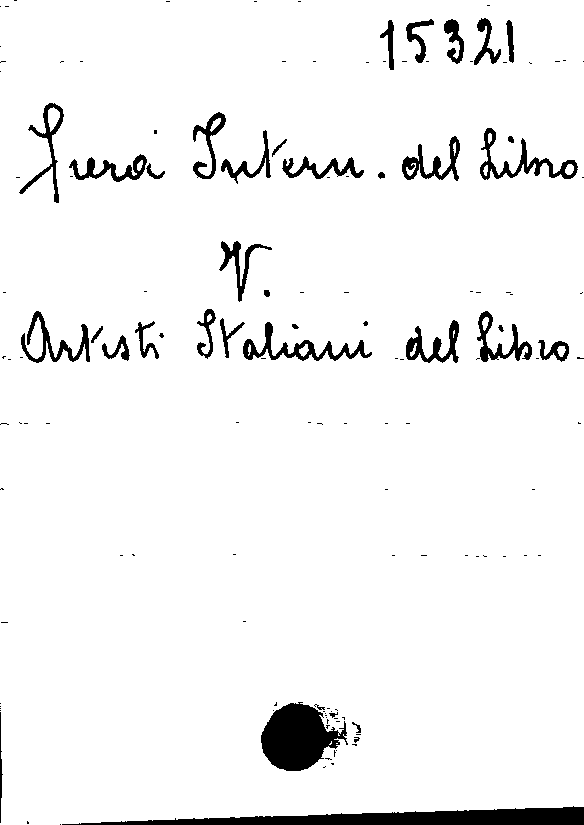 15321
Fiera Intern. del Libro
V.
Artisti Italiani del Libro